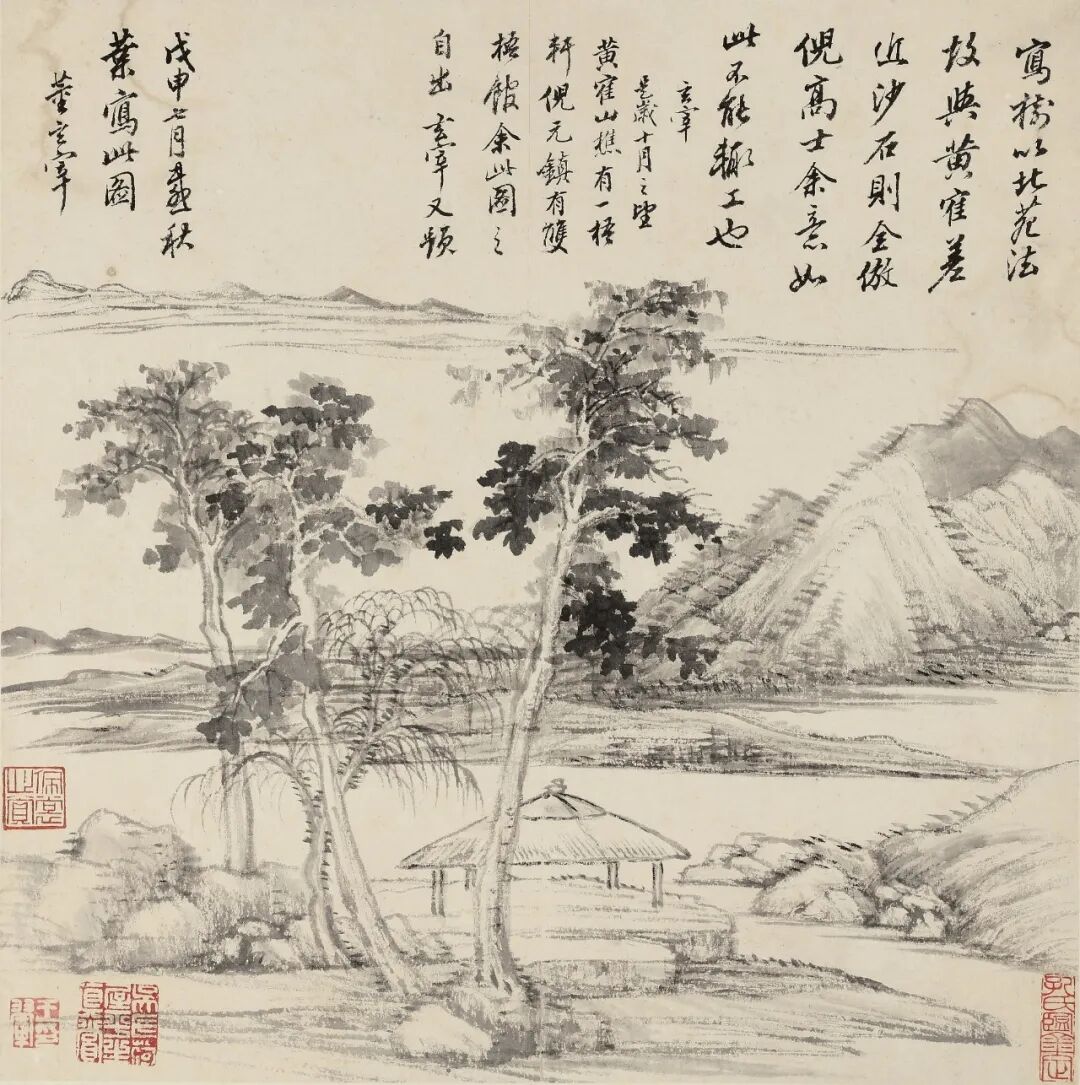 寫樹以北苑法
故與黃隺差
近沙石則全倣
倪高士余意如
此不能輙工也
玄宰
是歲十月之望
黃隺山樵有一梧
軒倪元鎮有雙
梧館余此圖之
自出 玄宰又題
戊申七月秋
葉寫此圖
董玄宰